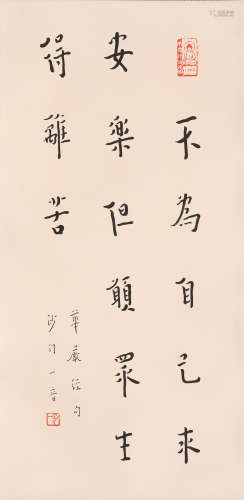 不為自己求
安樂但願眾生
得離苦
華嚴經句
沙門一音